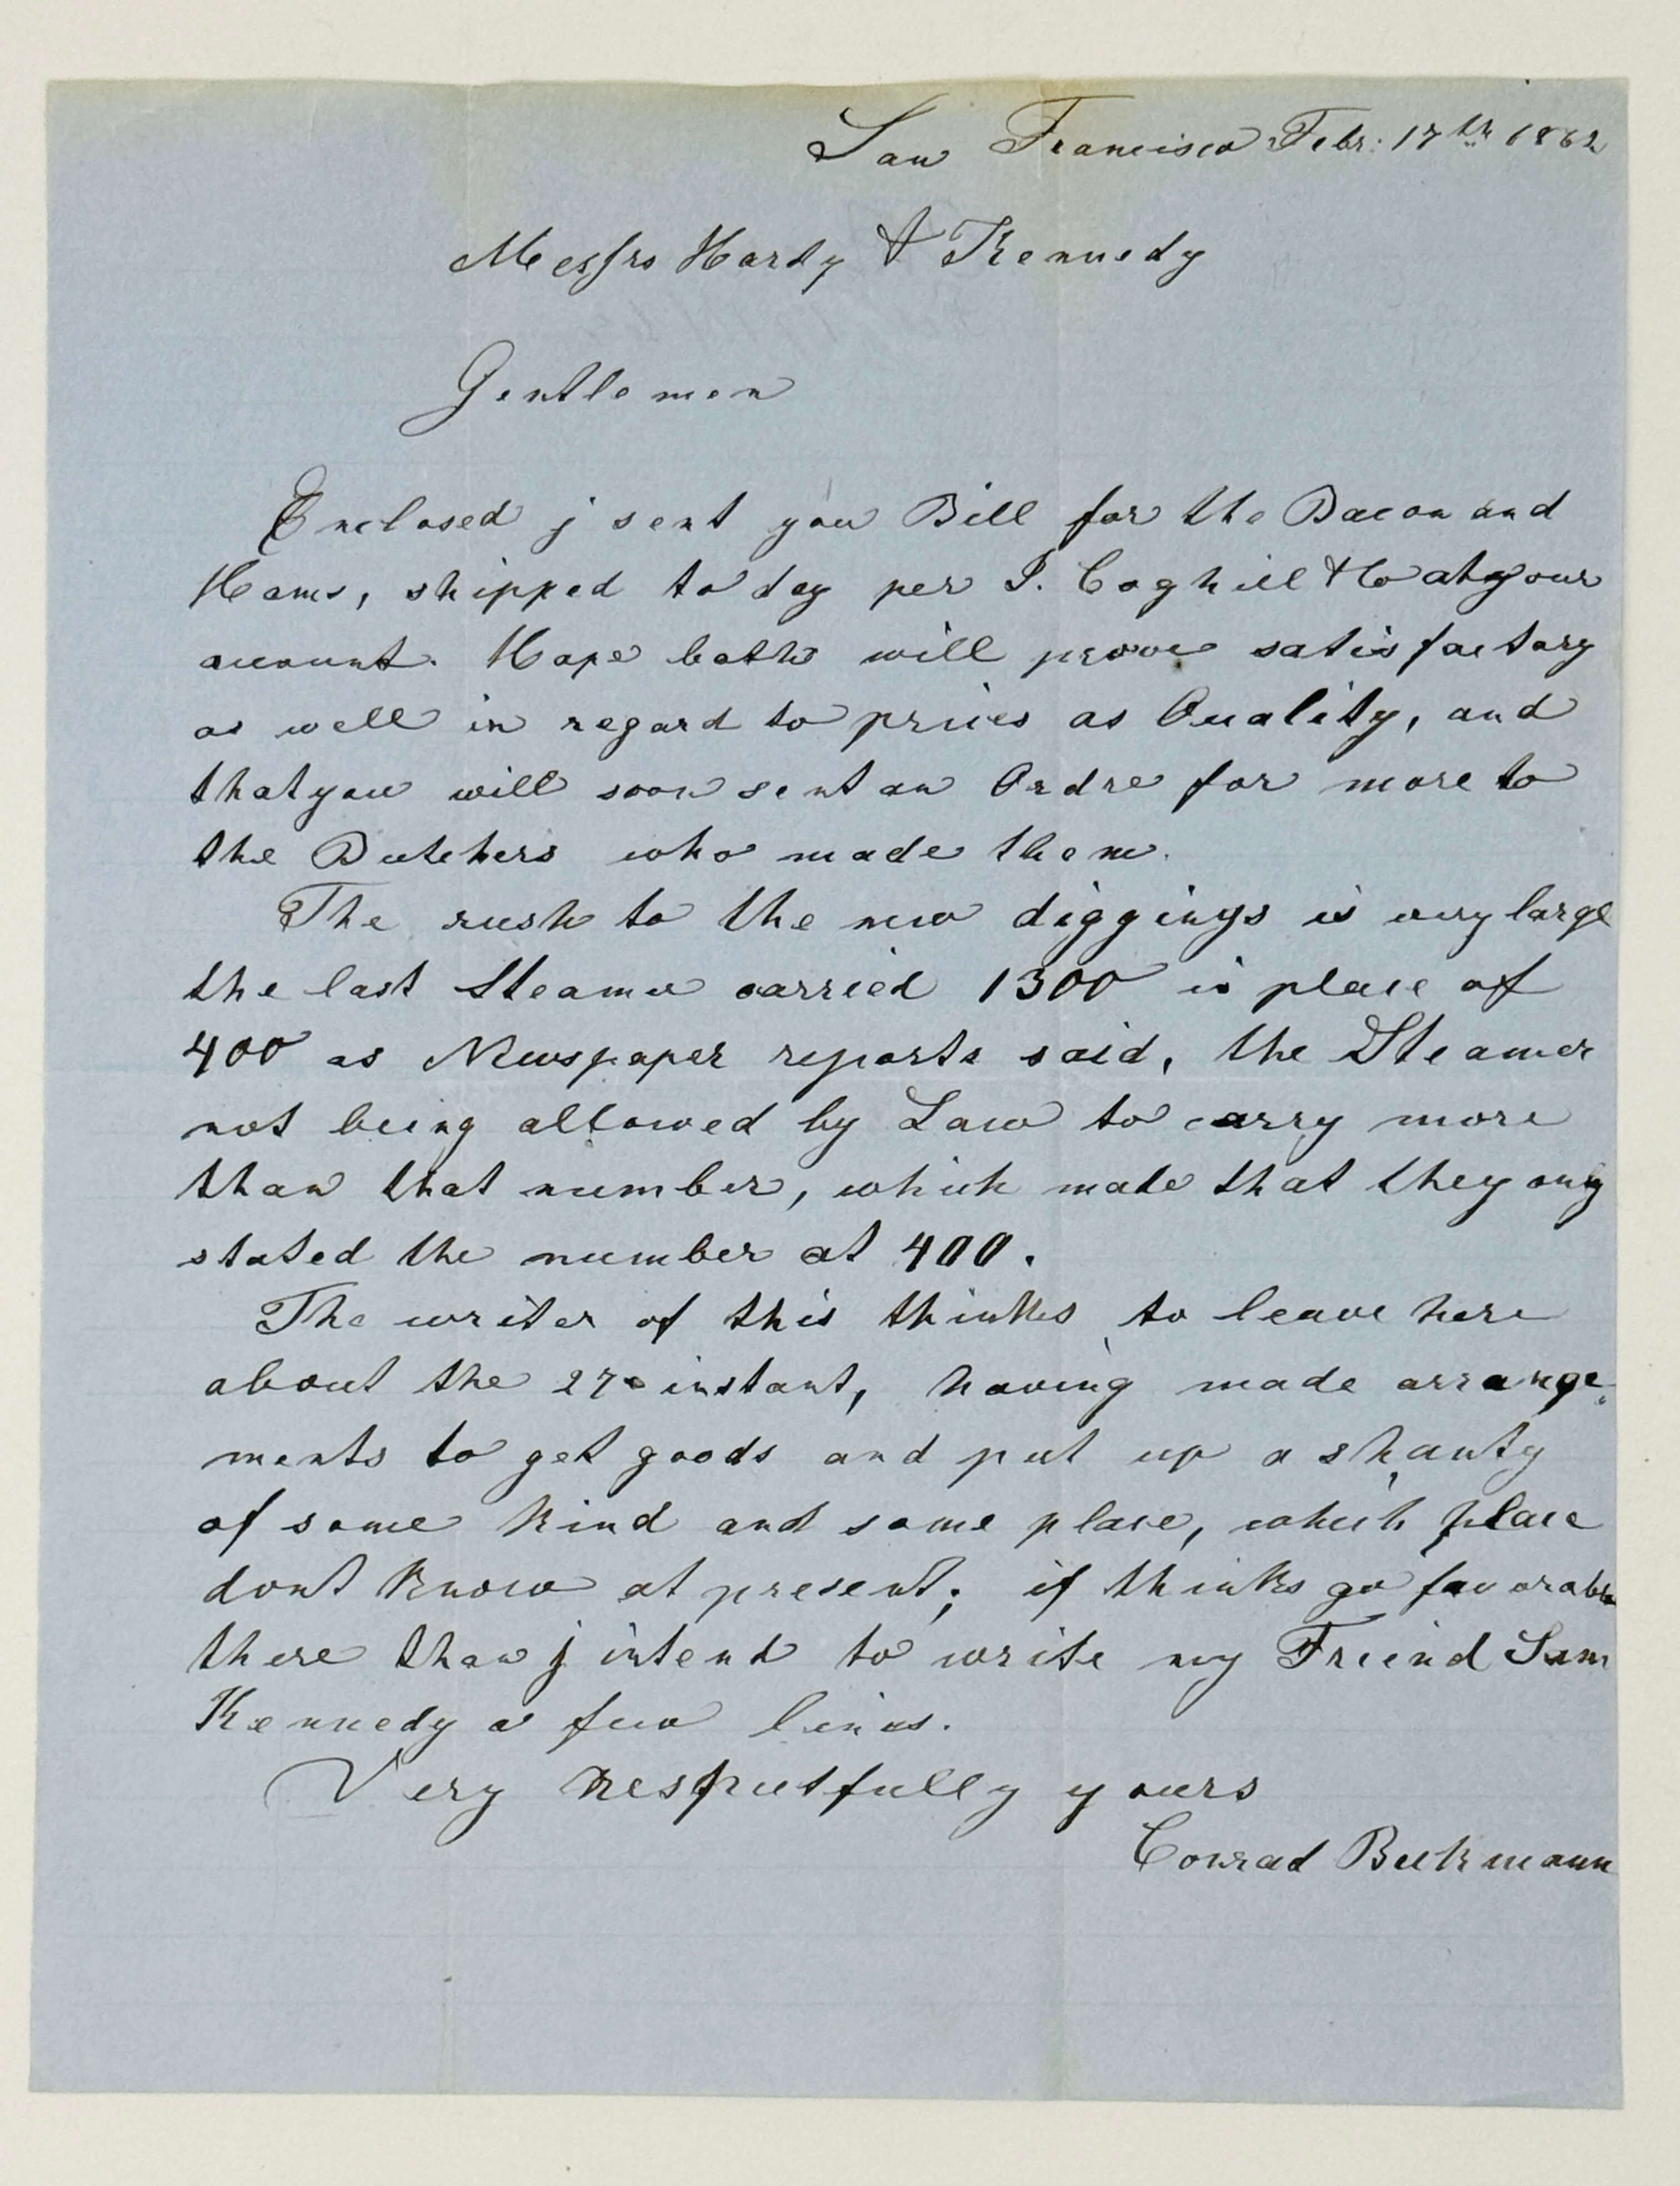 San Francisco Febr: 17th 1862
Messrs Hardy & Kennedy
Gentlemen
Enclosed j sent you Bill for the Bacon and
Hams, shipped to day per J. Coghill & Co at your
account. Hope both will prove satisfactory
as well in regard to prices as Quality, and
that you will soon sent an Ordre for more to
the Butchers who made them.
The rush to the new diggings is very large
the last Steamer carried 1300 in place of
400 as Newspaper reports said, the Steamer
not being allowed by Law to carry more
than that number, which made that they only
stated the number at 400.
The writer of this thinks to leave here
about the 27 instant, having made arrange-
ments to get goods and put up a shanty
of some kind and some place, which place
dont know at present; if thinks go favorable
there than j intend to write my Freind Sam
Kennedy a few lines.
Very respectfully yours
Conrad Beekmann